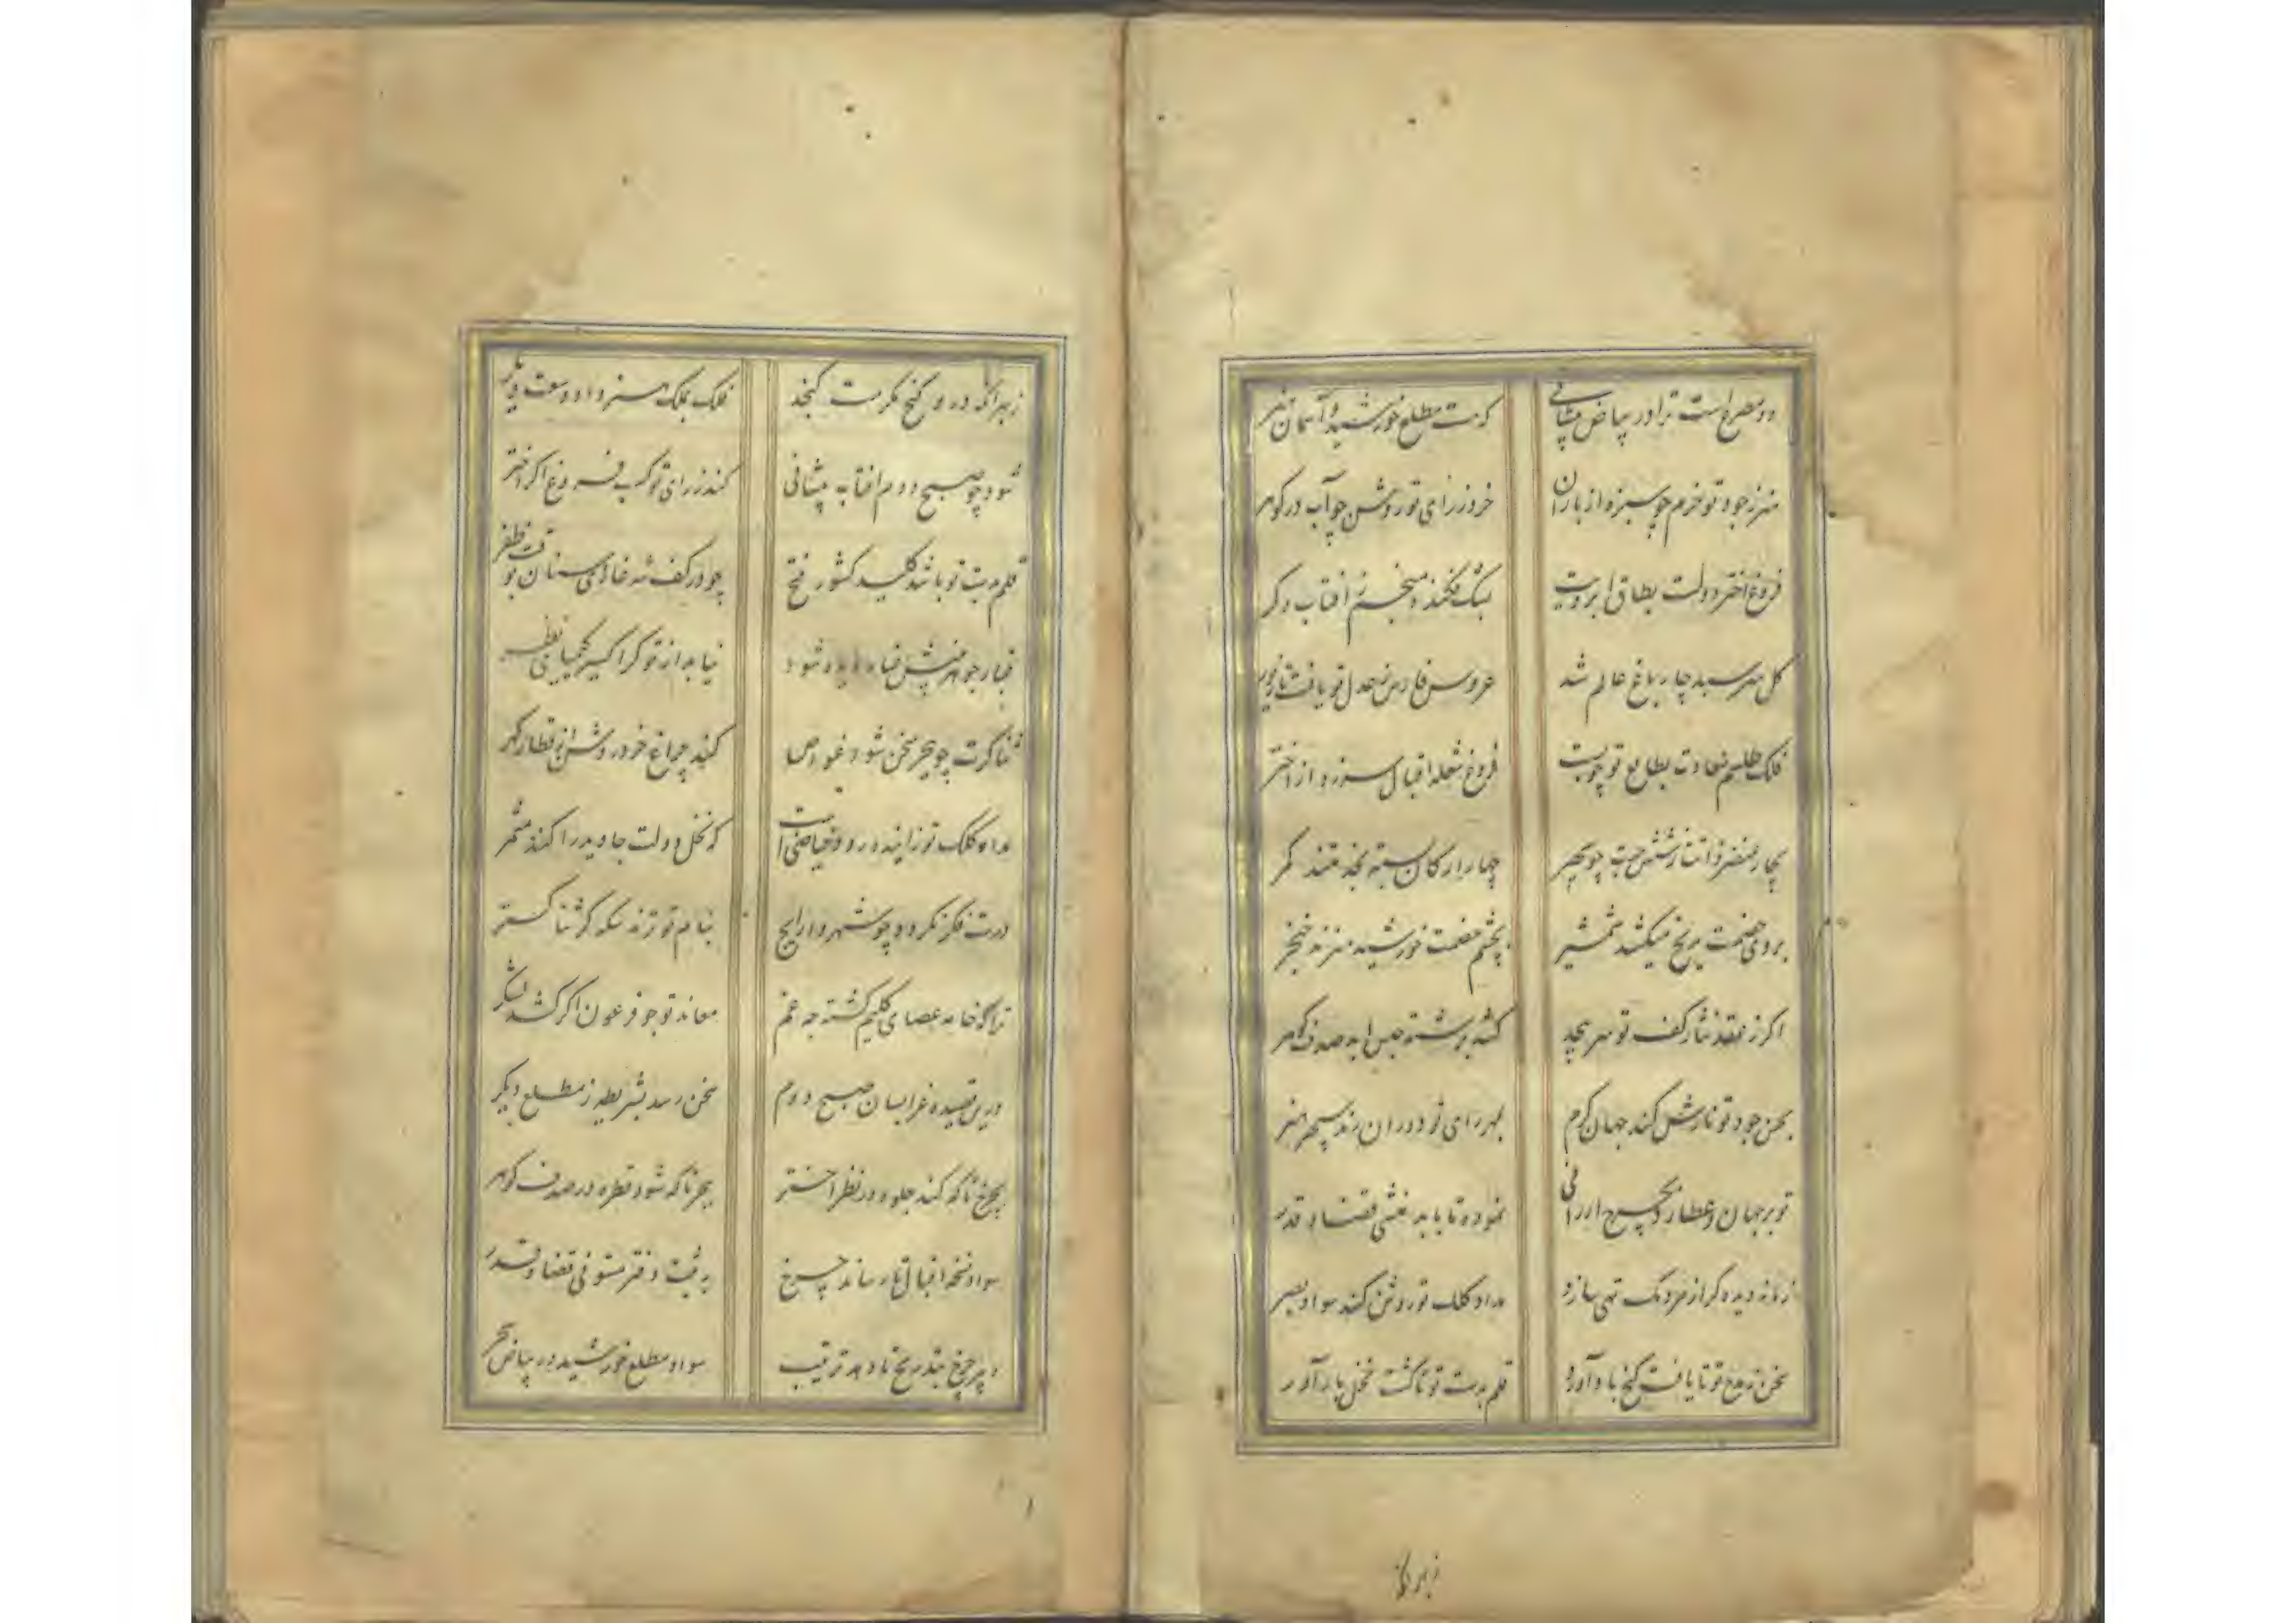 دو مصرع است ترا در بیاض پیشانی که مطلع خورشید و آسمان
هنر ز جود تو خرم چو سبزه از باران خرد ز رای تو روشن چو آب در گوهر
فروغ اختر دولت بطاق ابرویت فکند آفتاب دگر
گل سر سبد چار باغ عالم شد عروس فارس ز عدل تو یافت تا زیور
فلک طلسم سعادت بطالع تو چو بست فروغ شعله اقبال سر زد از اختر
بچار عنصر ذاتت چو سپهر چهار ارکان بسته بخدمتند کمر
بروی خصمت مریخ میکشد شمشیر بچشم خصمت خورشید میزند خنجر
اگر ز عقد نثار کف تو سر پیچد کشد برشته صدف گوهر
بحسن جود تو نازش کند جهان کرم بمهر رای تو دوران زند سپهر هنر
تو بر جهان و عطارد بچرخ ارزانی نموده تا باید منشی قضا و قدر
زمانه دیده گر از مردمک تهی سازد مداد کلک تو روشن کند سواد بصر
سخن ز مدح تو تا یافت گنج بادآورد قلم بدست تو تا گشت نخل بارآور
زبرانکه
زبرانکه درو گنج مکرمت گنجد فلک بملک هنر داد وسعت دیگر
شود چو صبح دوم آفتاب پیشانی کند ز رای تو کسب فروغ اگر اختر
قلم بدست تو باشد کلید کشور فتح چو در کف شه غازی سنان بوقت ظفر
غبار جوهر شود نیابد از تو گر اکسیر کیمیای نظر
ثناگرت چو ببحر سخن شود غواص کند چراغ خرد روشن از قطار گهر
مداد کلک تو زاینده رود فیاضی است که نخل دولت جاوید را کند مثمر
درست فکر نکرده چو شهر وا رایج بنام تو زند سکه گر ثنا گستر
ترا که خامه عصای کلیم گشته چه غم معاند تو چو فرعون اگر کشد لشکر
درین قصیده غرا بسان صبح دوم سخن رسد بشریطه ز مطلع دیگر
بچرخ تا که کند جلوه در نظر اختر ببحر تا که شود قطره در صدف گوهر
سواد نسخه اقبال تا رساند چرخ به ثبت دفتر مستوفی قضا و قدر
دبیر چرخ بتدریج تا دهد ترتیب سواد مطلع خورشید در بیاض سحر